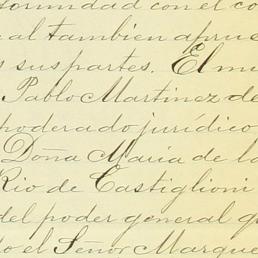 sormidad con el co
al tambien aprue
s sus partes. El mi
Pablo Martinez de
poderado jurídico
Doña Maria de la
Rio de Castiglioni
del poder general q
o el Señor Marque